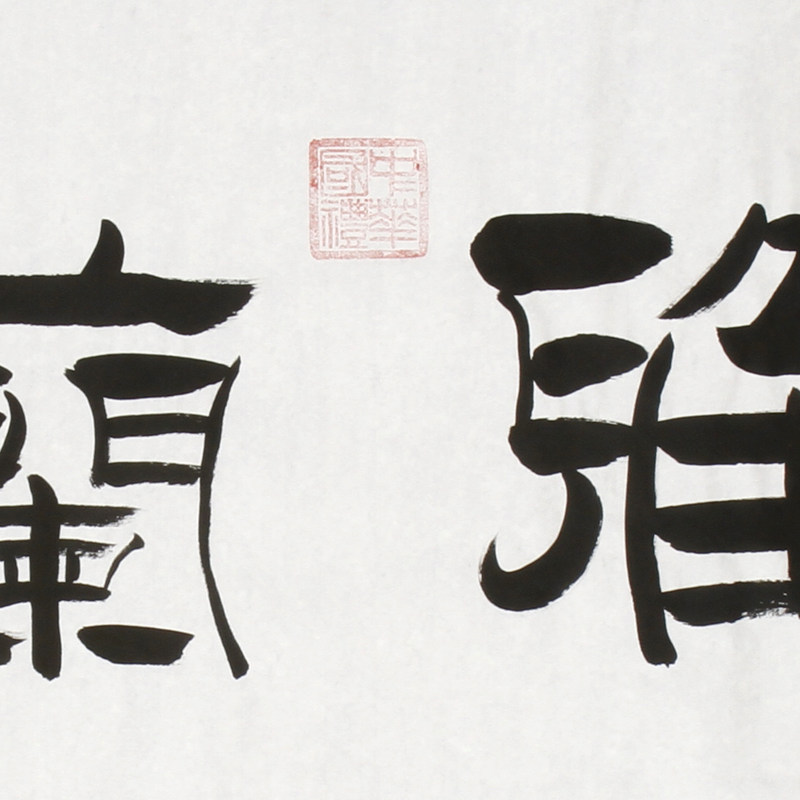 雅蘭
中華
國禮